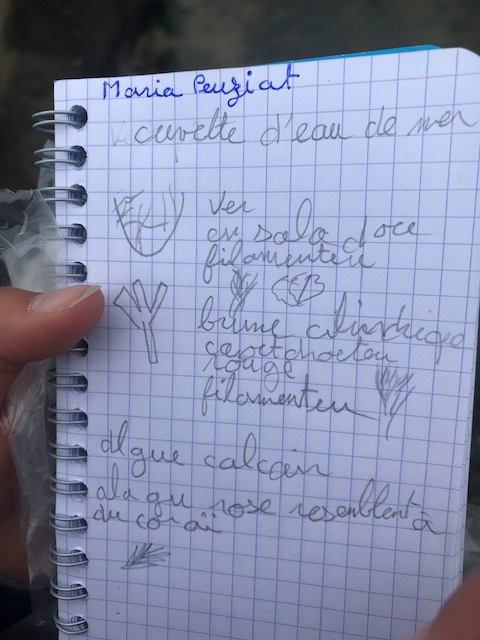 Maria Peuziat
cuvette d'eau de mer
ver
en salo doce
filamenteu
brune elinstique
caoutchoctou
rouge
filamenteu
algue calcair
ala gu rose resemblent à
du coraï